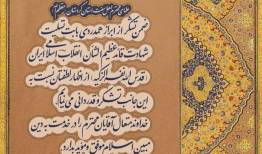 علمای محترم اهل سنت استان کردستان
ضمن تشکر از ابراز همدردی بابت تسلیت
شهادت قائد عظیم الشأن انقلاب اسلامی ایران
(قدس الله نفسه الزکیه) از اظهار لطفتان نسبت به
این جانب تشکر و قدردانی می نمایم
خداوند متعال آقایان محترم را در خدمت به دین
مبین اسلام موفق و مؤید بدارد